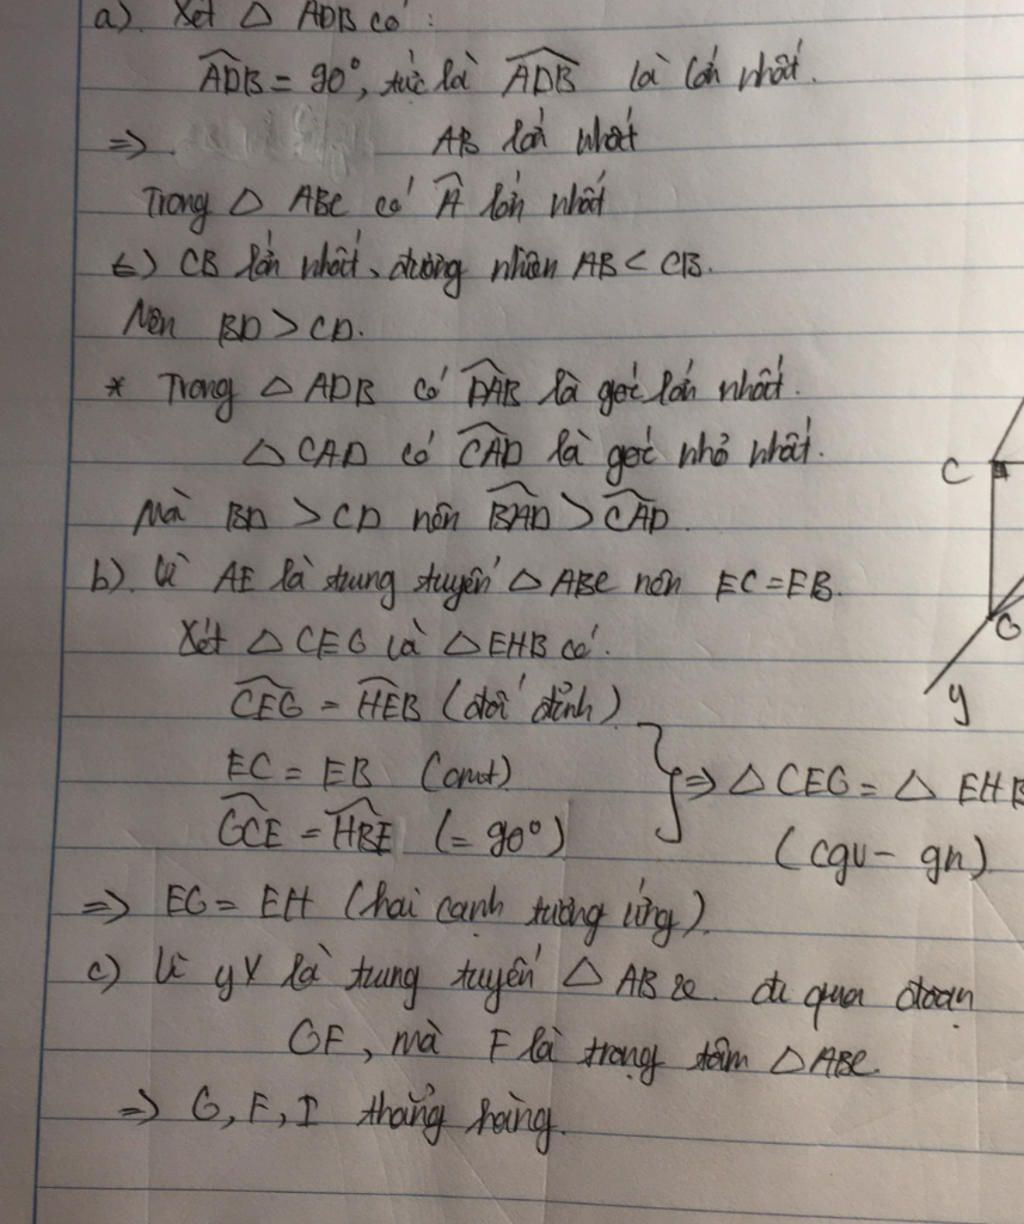 a) Xét △ ADB có :
ADB = 90°, tức là ADB là lớn nhất.
=> AB lớn nhất
Trong △ ABC có A lớn nhất
=> CB lớn nhất, đương nhiên AB < CB.
Nên BD > CD.
* Trong △ ADB có DAB là góc lớn nhất.
△ CAD có CAD là góc nhỏ nhất.
Mà BD > CD nên BAD > CAD.
b) Vì AE là trung tuyến △ ABC nên EC = EB.
Xét △ CEG và △ EHB có.
CEG = HEB (đối đỉnh)
EC = EB (cmt)
GCE = HBE (= 90°)
=> △ CEG = △ EHB
(cgv - gn)
=> EG = EH (hai cạnh tương ứng).
c) Vì yx là trung tuyến △ AB đi qua đoạn
GF, mà F là trọng tâm △ ABC.
=> G, F, I thẳng hàng.
C
G
y